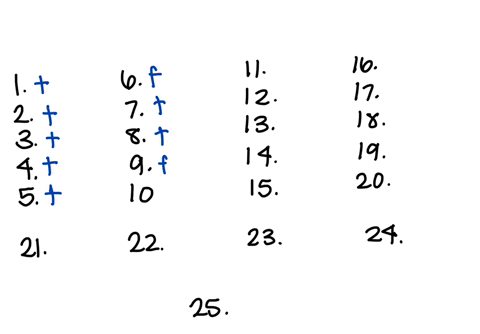 1. t 6. f 11. 16.
2. t 7. t 12. 17.
3. t 8. t 13. 18.
4. t 9. f 14. 19.
5. t 10 15. 20.
21. 22. 23. 24.
25.